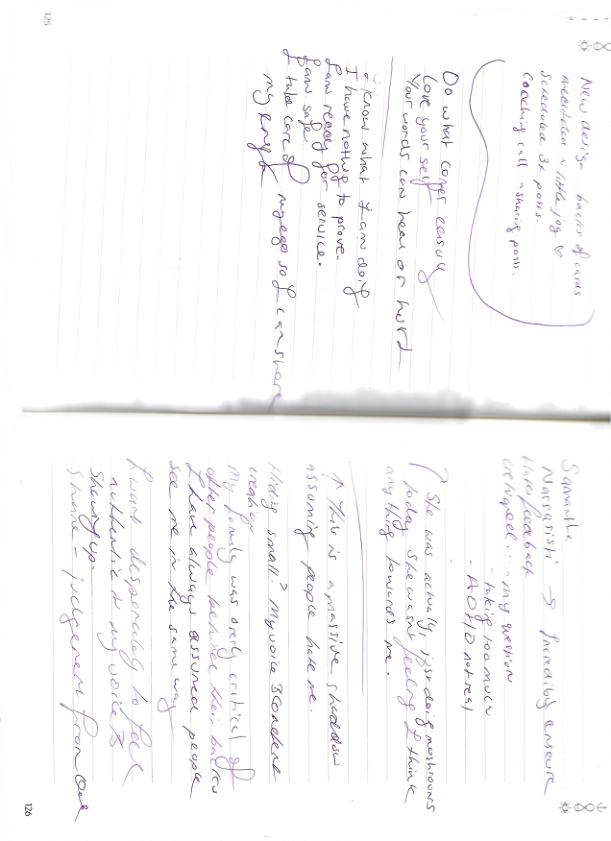 125
New design backs of cards
meditation ~ little joy
Scheduled 3x posts.
Coaching call ~ sharing posts.
Do what comes easily
Love your self
Your words can heal or hurt
I know what I am doing
I have nothing to prove.
I am ready for service.
I am safe
I take care of my ego so I can share
my
126
Samantha
Narcassisti → Incredibly ensecure
Hates feedback
my question
- taking too much
- ADHD not real
She was actually just doing mushrooms
today she wasn't feeling I think
anything towards me.
↑ This is a massive shaddow
assuming people hate me.
Hiding small? My voice & Condene
creating
My family was only critical of
other people behind their backs
I have always assumed people
see me in the same way
I want desperately to feel
authentic to my voice &
Showing up.
Shame - judgement from